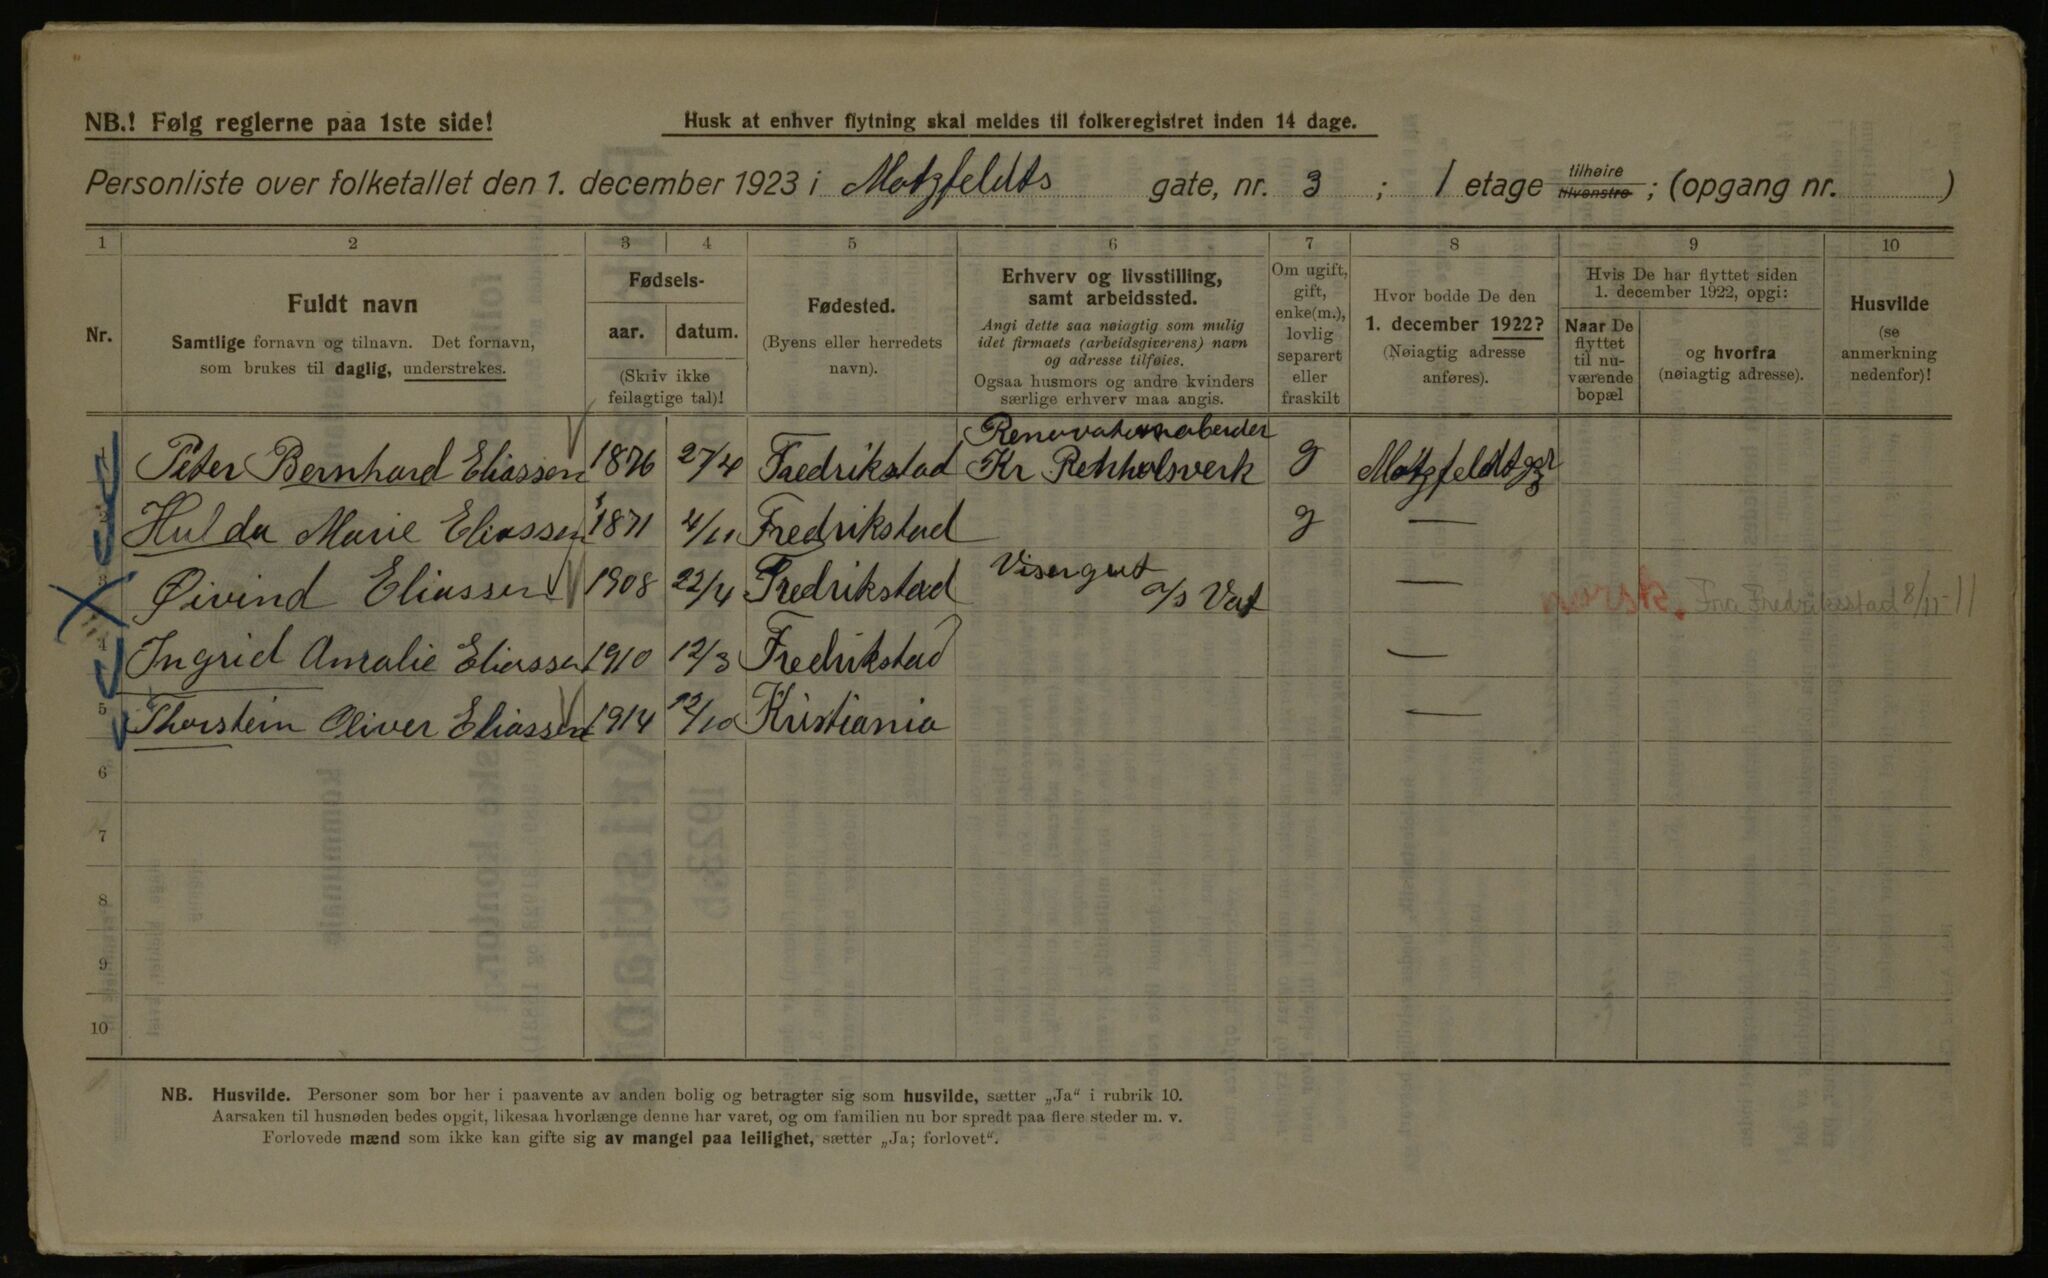 NB.! Følg reglerne paa 1ste side!
Husk at enhver flytning skal meldes til folkeregistret inden 14 dage.
Personliste over folketallet den 1. december 1923 i Motzfeldts gate, nr. 3 ; 1 etage tilhøire tilvenstre ; (opgang nr. )
1 2 3 4 5 6 7 8 9 10
Nr.
Fuldt navn
Samtlige fornavn og tilnavn. Det fornavn,
som brukes til daglig, understrekes.
Fødsels-
aar. datum.
(Skriv ikke
feilagtige tal)!
Fødested.
(Byens eller herredets
navn).
Erhverv og livsstilling,
samt arbeidssted.
Angi dette saa nøiagtig som mulig
idet firmaets (arbeidsgiverens) navn
og adresse tilføies.
Ogsaa husmors og andre kvinders
særlige erhverv maa angis.
Om ugift,
gift,
enke(m.),
lovlig
separert
eller
fraskilt
Hvor bodde De den
1. december 1922?
(Nøiagtig adresse
anføres).
Hvis De har flyttet siden
1. december 1922, opgi:
Naar De
flyttet
til nu-
værende
bopæl
og hvorfra
(nøiagtig adresse).
Husvilde
(se
anmerkning
nedenfor)!
Renovationsarbeider
Peter Bernhard Eliassen 1876 27/4 Fredrikstad Kr Renholsverk g Motzfeldtsgt 3
2 Hulda Marie Eliassen 1871 4/11 Fredrikstad g —
3 Øivind Eliassen 1908 22/4 Fredrikstad Visergut A/S Vat — norsk. Fra Fredriksstad 8/11-11
4 Ingrid Amalie Eliassen 1910 12/3 Fredrikstad —
5 Thorstein Oliver Eliassen 1914 12/10 Kristiania —
6
7
8
9
10
NB. Husvilde. Personer som bor her i paavente av anden bolig og betragter sig som husvilde, sætter „Ja“ i rubrik 10.
Aarsaken til husnøden bedes opgit, likesaa hvorlænge denne har varet, og om familien nu bor spredt paa flere steder m. v.
Forlovede mænd som ikke kan gifte sig av mangel paa leilighet, sætter „Ja; forlovet“.